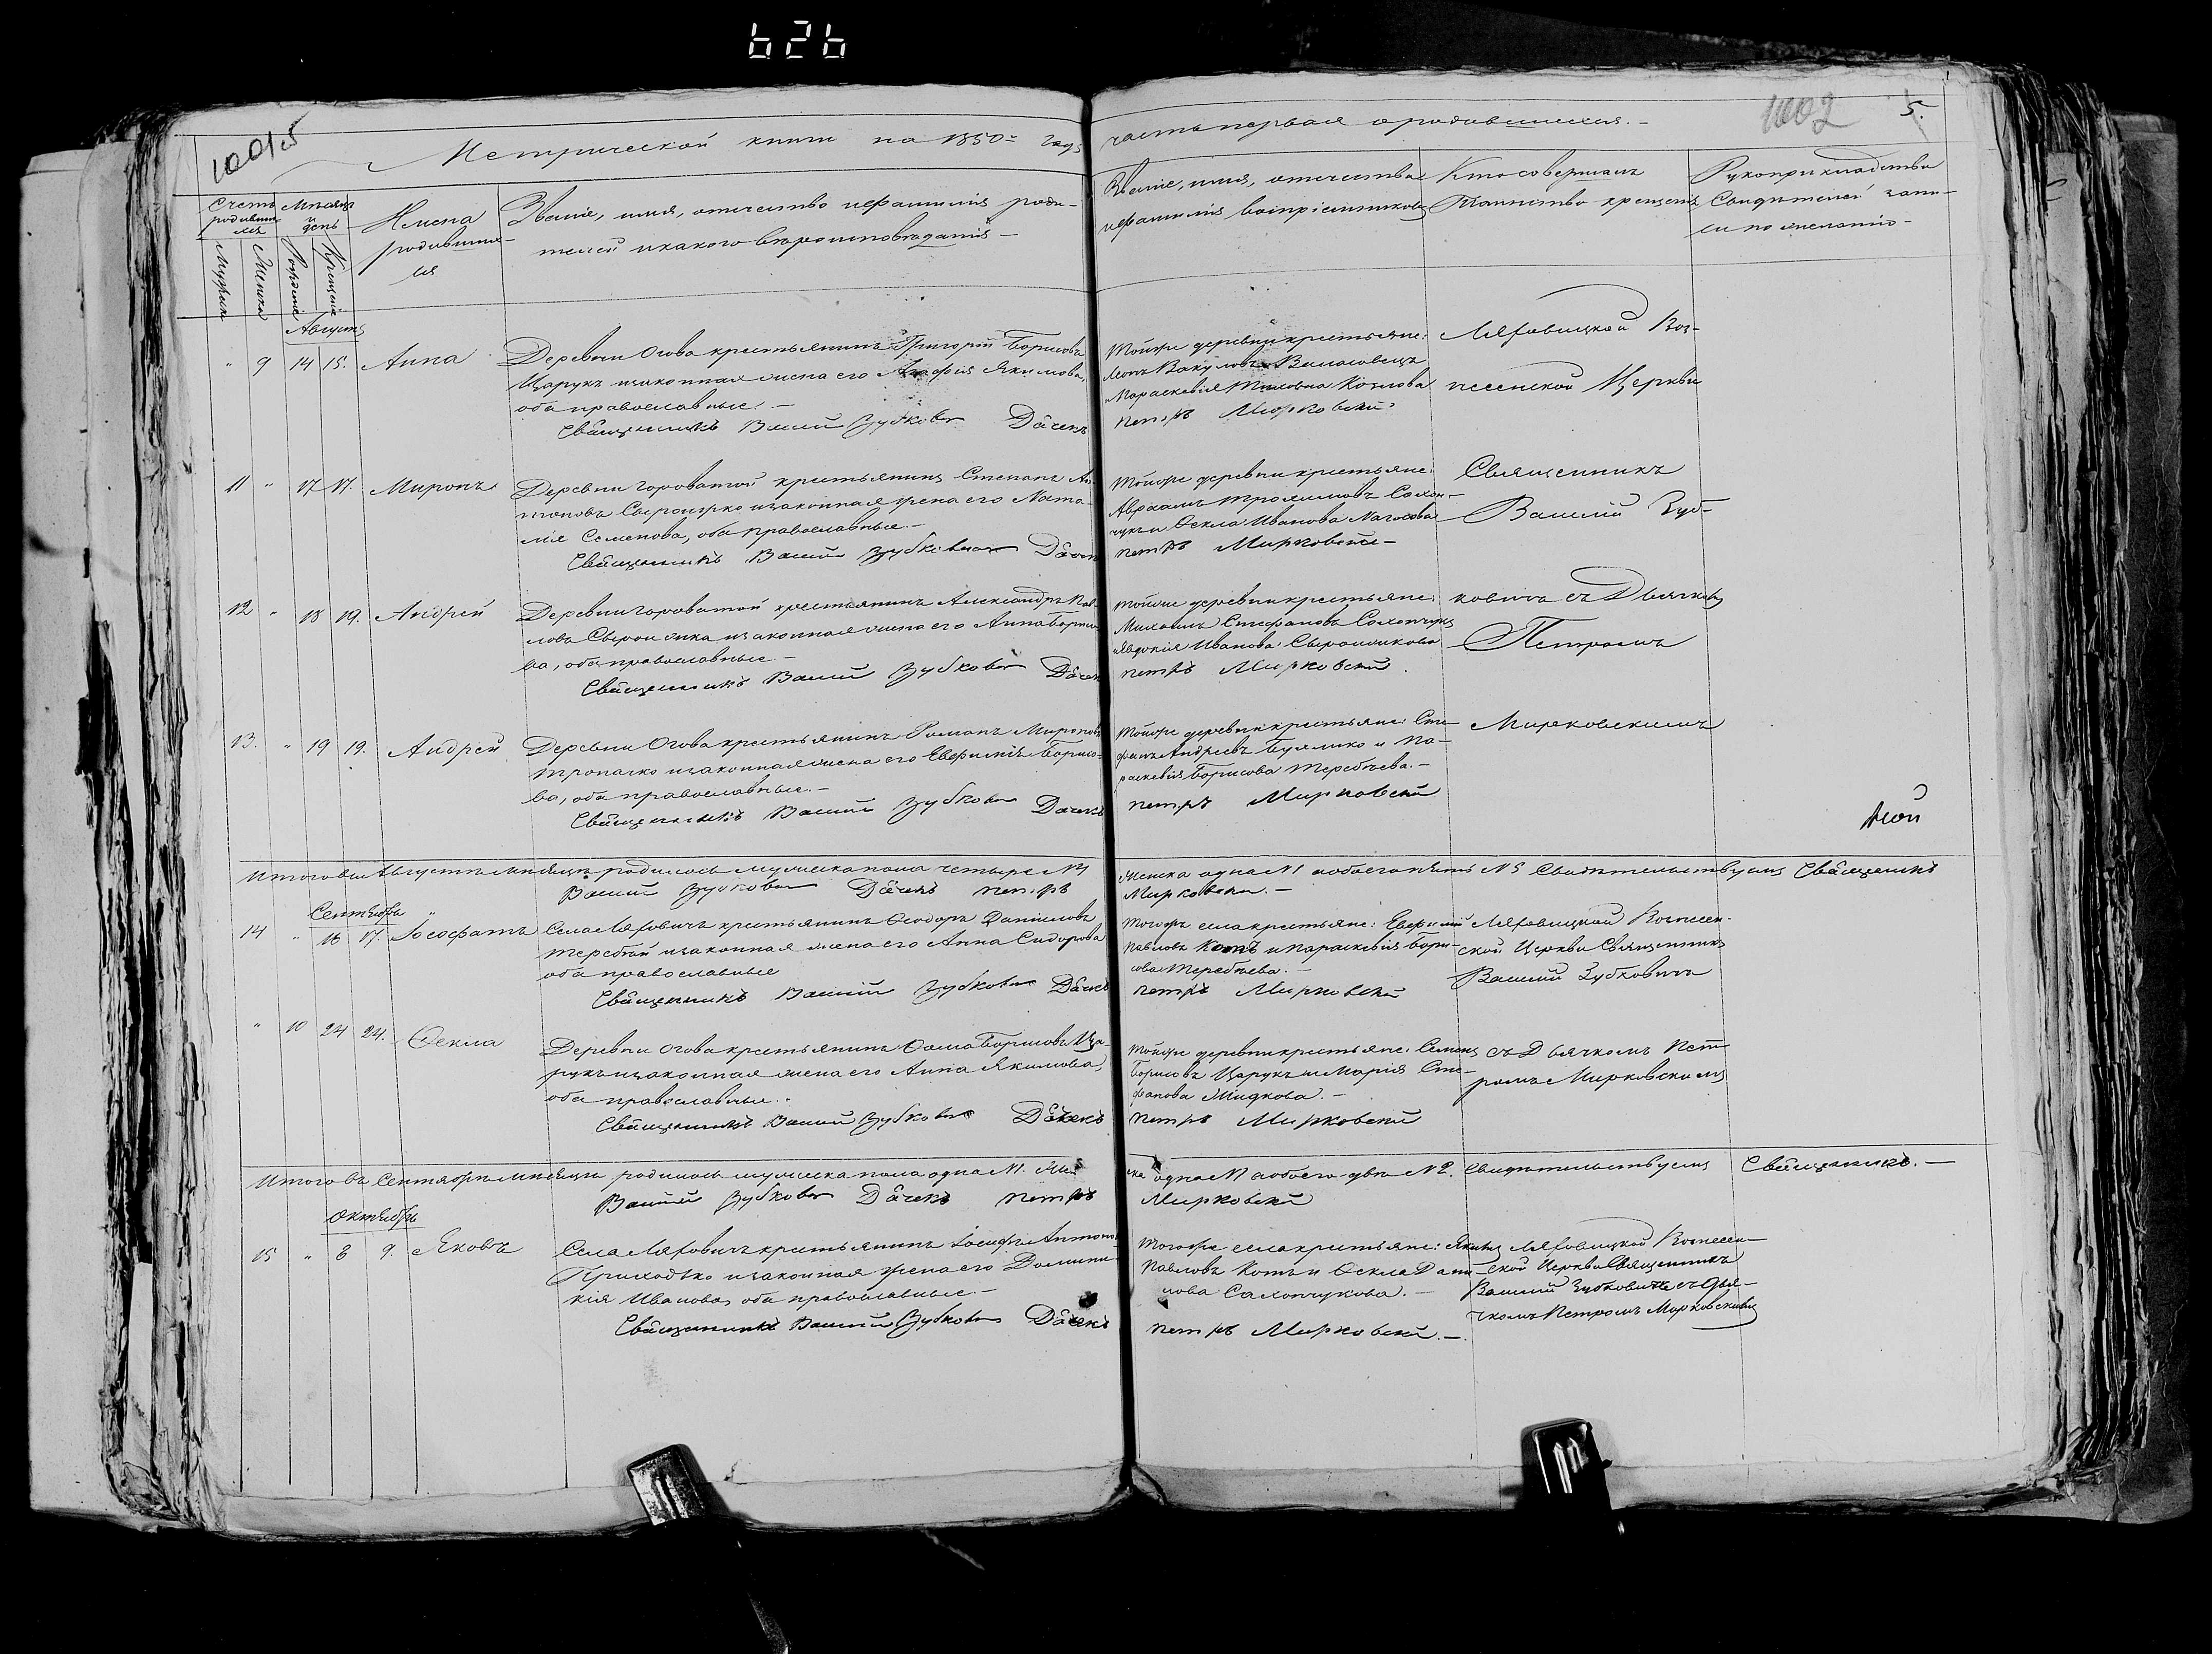 626
1001 5
1002 5.
Метрической книги на 1850 годъ
часть первая о родившихся.-
Счетъ родившихся
Мужеска
Женска
Мѣсяцъ и день
Рожденія
Крещенія
Имена
родивших-
ся
Званіе, имя, отчество и фамилія роди-
телей и какого вѣроисповѣданія-
Званіе, имя, отчество
и фамилія воспріемниковъ
Кто совершалъ
Таинство крещенія
Рукоприкладство
Свидѣтелей запи-
си по желанію-
Августъ
" 9 14 15. Анна
Деревни Огова крестьянинъ Григорій Борисовъ
Царукъ и законная жена его Агафія Якимова,
оба православные.-
Священникъ Василій Зубковичъ Дьячекъ
Тойже деревни крестьяне:
Леонъ Вакуловъ
Параскевія Козлова
петръ Мирковскій
Ляховицкой Воз-
несенской Церкви
11 " 17 17. Миронъ
Деревни Гороватой крестьянинъ Степанъ Ан-
тоновъ Сыроижко и законная жена его Ната-
лія Семенова, оба православные.-
Священникъ Василій Зубковичъ Дьячекъ
Тойже деревни крестьяне:
Авраамъ Трохимовъ Сахон-
чукъ и Ѳекла Иванова
петръ Мирковскій-
Священникъ
Василій Зуб-
12 " 18 19. Андрей
Деревни Гороватой крестьянинъ Александръ Пав-
ловъ и законная жена его Анна Борисо-
ва, оба православные.-
Священникъ Василій Зубковичъ Дьячекъ
Тойже деревни крестьяне:
Михаилъ Стефановъ Сахончукъ
и Явдокія Иванова
петръ Мирковскій.
ковичъ съ Дьячкомъ
Петромъ
13. " 19 19. Андрей
Деревни Огова крестьянинъ Романъ Мироновъ
и законная жена его Евфимія Борисо-
ва, оба православные.-
Священникъ Василій Зубковичъ Дьячекъ
Тойже деревни крестьяне: Сте-
фанъ Андреевъ и Па-
раскевія Борисова Теребѣева.-
петръ Мирковскій
Мирковскимъ
Итого въ Августѣ мѣсяцѣ родилось мужеска пола четыре №4
женска одна №1 а обоего пять №5 Свидѣтельствуемъ Священникъ
Василій Зубковичъ Дьячекъ петръ
Мирковскій.-
Сентябрь
14 " 16 17. Іосафатъ
Села Ляховичъ крестьянинъ Ѳеодоръ Даниловъ
Теребѣй и законная жена его Анна Сидорова
оба православные
Священникъ Василій Зубковичъ Дьячекъ
Тогоже села крестьяне: Евфимій
Павловъ Котъ и Параскевія Бори-
сова Теребѣева.-
петръ Мирковскій
Ляховицкой Вознесен-
ской Церкви Священникъ
Василій Зубковичъ
" 10 24 24. Ѳекла
Деревни Огова крестьянинъ Ѳома Борисовъ Ца-
рукъ и законная жена его Анна Якимова,
оба православные.
Священникъ Василій Зубковичъ Дьячекъ
Тойже деревни крестьяне: Семенъ
Борисовъ Царукъ и Марія Сте-
фанова Мидкова.-
петръ Мирковскій
съ Дьячкомъ Пет-
ромъ Мирковскимъ
Итого въ Сентябрѣ мѣсяцѣ родилось мужеска пола одна №1. Жен-
ска одна №1 а обоего два №2. Свидѣтельствуемъ Священникъ.-
Василій Зубковичъ Дьячекъ петръ
Мирковскій
Октябрь
15 " 8 9. Яковъ
Села Ляховичъ крестьянинъ Іосифъ Антоно-
Приходько и законная жена его Домини-
кія Иванова, оба православные.-
Священникъ Василій Зубковичъ Дьячекъ
Тогоже села крестьяне: Якимъ
Павловъ Котъ и Ѳекла Дани-
лова Сахончукова.-
петръ Мирковскій.-
Ляховицкой Вознесен-
ской Церкви Священникъ
Василій Зубковичъ съ Дья-
чкомъ Петромъ Мирковскимъ